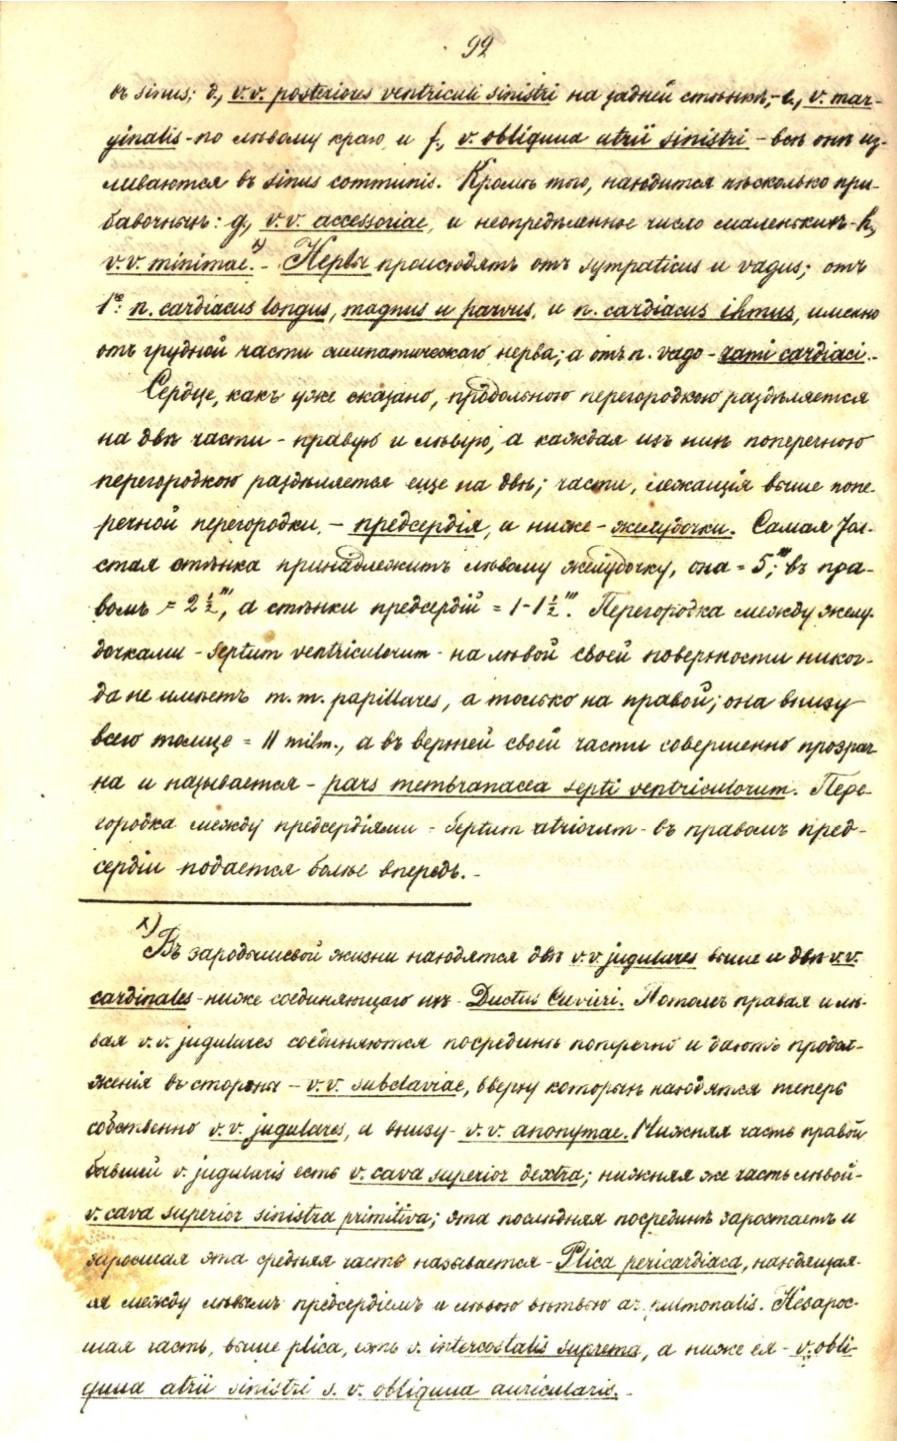 92
въ sinus; d, v.v. posteriores ventriculi sinistri на задней стѣнкѣ,-e, v. mar-
ginalis-по лѣвому краю и f, v. obliqua atrii sinistri - всѣ онѣ из-
ливаются въ sinus communis. Кромѣ того, находится нѣсколько при-
бавочныхъ: g, v.v. accessoriae, и неопредѣленное число маленькихъ-h,
v.v. minimae. ¹) - Нервы происходятъ отъ sympaticus и vagus; отъ
1го: n. cardiacus longus, magnus и parvus, и n. cardiacus ihmus, именно
отъ грудной части симпатическаго нерва; а отъ n. vago - rami cardiaci.-
Сердце, какъ уже сказано, продольною перегородкою раздѣляется
на двѣ части - правую и лѣвую, а каждая изъ нихъ поперечною
перегородкою раздѣляется еще на двѣ; части, лежащія выше попе-
речной перегородки, - предсердія, и ниже - желудочки. Самая тол-
стая стѣнка принадлежитъ лѣвому желудочку, она = 5‴; въ пра-
вомъ = 2 ½‴, а стѣнки предсердій = 1-1 ½‴. Перегородка между желу-
дочками - septum ventriculorum - на лѣвой своей поверхности никог-
да не имѣетъ m. m. papillares, а только на правой; она внизу
всего толще = 11 milm., а въ верхней своей части совершенно прозрач-
на и называется - pars membranacea septi ventriculorum. Пере-
городка между предсердіями - septum atriorum - въ правомъ пред-
сердіи подается болѣе впередъ. -
¹) Въ зародышевой жизни находятся двѣ v.v. jugulares выше и двѣ v.v.
cardinales - ниже соединяющаго ихъ - Ductus Cuvieri. Потомъ правая и лѣ-
вая v.v. jugulares соединяются посрединѣ поперечно и даютъ продол-
женія въ стороны - v.v. subclaviae, вверху которыхъ находятся теперь
собственно v.v. jugulares, и внизу - v.v. anonymae. Нижняя часть правой
бывшей v. jugularis есть v. cava superior dextra; нижняя же часть лѣвой-
v. cava superior sinistra primitiva; эта послѣдняя посрединѣ заростаетъ и
заросшая эта средняя часть называется - Plica pericardiaca, находящая-
ся между лѣвымъ предсердіемъ и лѣвою вѣтвью ar. pulmonalis. Незарос-
шая часть, выше plica, есть v. intercostalis suprema, а ниже ея - v. obli-
qua atrii sinistri s. v. obliqua auricularis. -